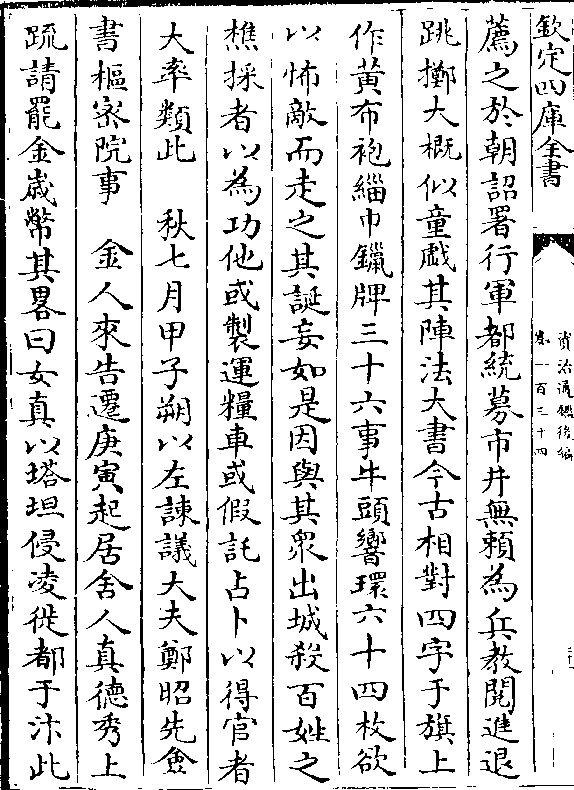 欽定四庫全書
資治通鑑後編
卷一百三十四
薦之於朝詔署行軍都統募市井無賴為兵教閱進退
跳擲大概似童戲其陣法大書今古相對四字于旗上
作黃布袍緇巾鑞牌三十六事牛頭響環六十四枚欲
以怖敵而走之其誕妄如是因與其衆出城殺百姓之
樵採者以為功他或製運糧車或假託占卜以得官者
大率類此　秋七月甲子朔以左諫議大夫鄭昭先僉
書樞宻院事　金人來告遷庚寅起居舍人真德秀上
䟽請罷金歲幣其畧曰女真以塔坦侵凌徙都于汴此